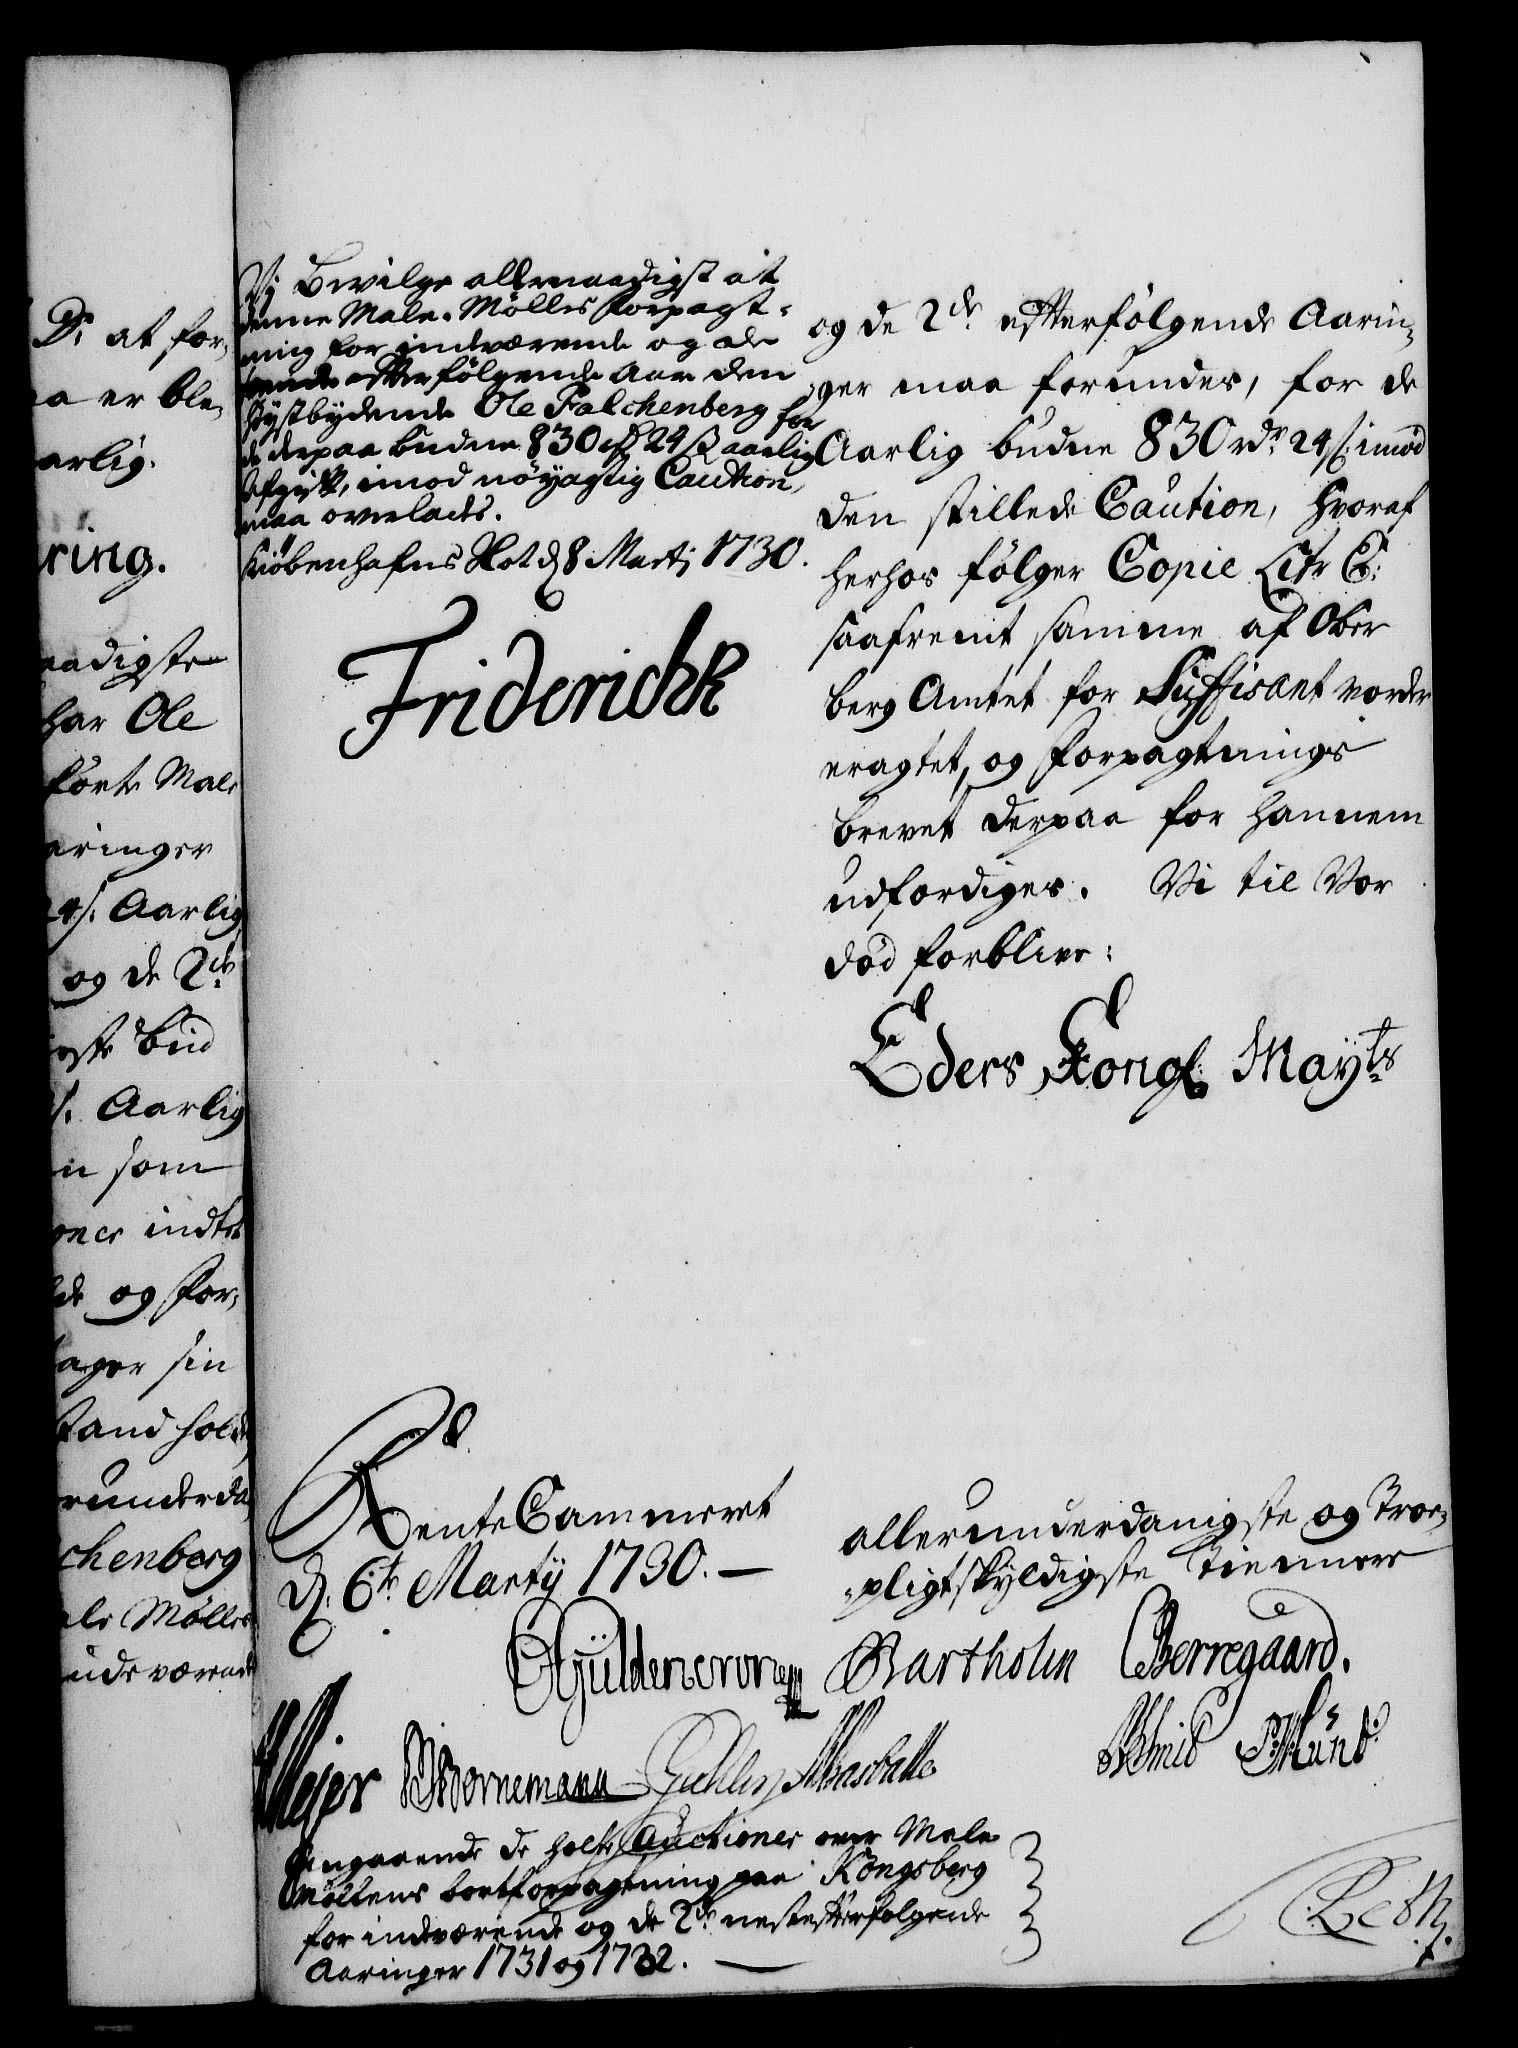 D: at for-
a er ble-
arlig.
ring.
aadigste
har Ole
förte Male
aringer
24 s. Aarlig
og de 2de
este Bud
s. Aarlig
n som
oner indtil
de og For-
ager sin
stand hold
runderda
chenberg
ale Mølles
indeværende
Vj bevilge allernaadigst at
denne Male-Mölles Forpagt-
ning for indværende og de
tvende efterfölgende Aar den
Höystbydende Ole Falchenberg for
de derpaa budne 830 rd 24 s aarlig
Afgift, imod nöyagtig Caution,
maa overlades.
Kiöbenhafns Slot d 8 Martj 1730.
Friderich R
og de 2de efterfölgende Aarin-
ger maa forundes, for de
Aarlig budne 830 rdr 24 s. imod
den stillede Caution, hvoraf
herhos fölger Copie Litr C:
saafremt samme af Ober
berg Amtet for Suffisant vorder
eragtet, og Forpagtnings
brevet derpaa for hannem
udfærdiges. Vi til Vor
död forblive:
Eders Kongl Mayts
Rente Cammeret
d. 6te Martij 1730.
allerunderdanigste og Troe-
pligtskyldigste Tiennere
Güldencrone Bartholin Berregaard.
Meier Bornemann
Angaaende de holte Auctioner over Male
Möllens bortforpagtning paa Kongsberg
for indeværende og de 2de nestefterfølgende
Aaringer 1731 og 1732.